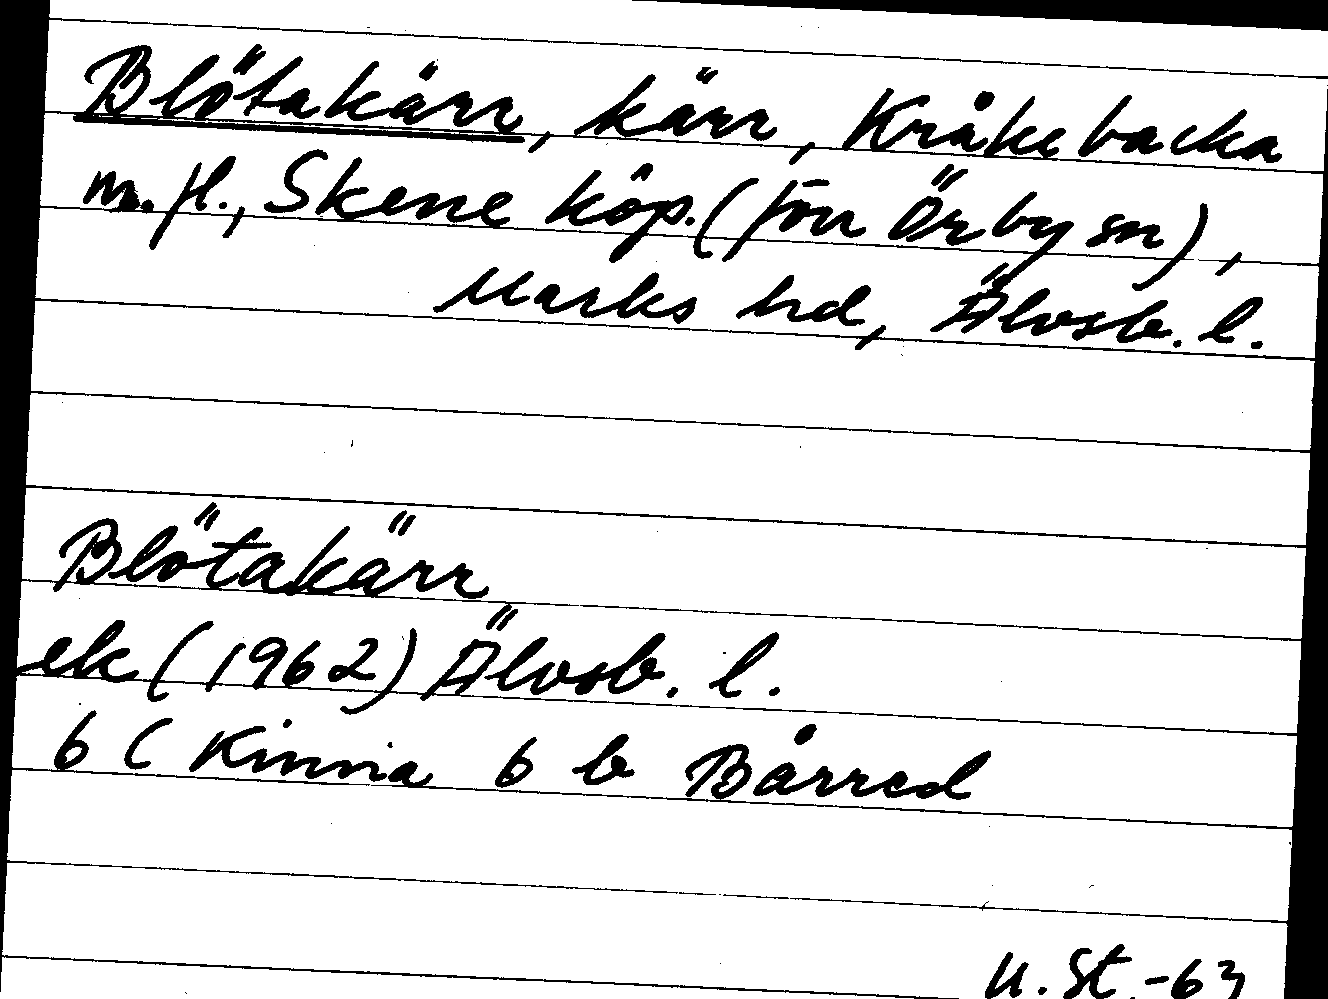 Blötakärr, kärr, Kråkebacka
m.fl., Skene köp. (förr Örby sn),
Marks hd, Älvsb. l.
Blötakärr
ek (1962) Älvsb. l.
6 C Kinna 6 b Bårred
U. St. -63